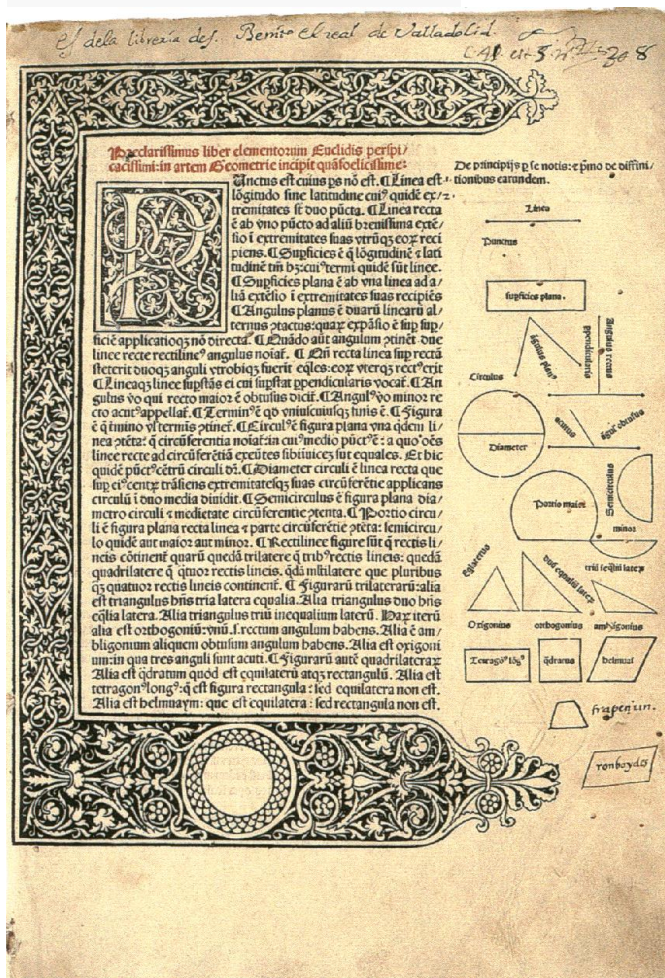 es dela libreria de S. Benito el real de Valladolid.
Preclarissimus liber elementorum Euclidis perspi/
cacissimi: in artem Geometrie incipit quãfoelicissime:
PUnctus est cuius ps nõ est. ¶ Linea est
lõgitudo sine latitudine cuiꝰ quidẽ ex/
tremitates sũt duo pũcta. ¶ Linea recta
ẽ ab vno pũcto ad aliũ breuissima extẽ/
sio ĩ extremitates suas vtrũqꝫ eoꝝ reci
piens. ¶ Supficies ẽ q̃ lõgitudinẽ ⁊ lati
tudinẽ tm̃ hꝫ: cuiꝰ termi quidẽ sũt linee.
¶ Supficies plana ẽ ab vna linea ad a/
liã extẽsio ĩ extremitates suas recipiẽs
¶ Angulus planus ẽ duarũ linearũ al/
ternus ꝯtactus: quaꝝ expãsio ẽ sup sup/
ficiẽ applicatioqꝫ nõ directa. ¶ Quãdo aũt angulum ꝯtinẽt due
linee recte rectilineꝰ angulus noiat̃. ¶ Qñ recta linea sup rectã
steterit duoqꝫ anguli vtrobiqꝫ fuerit eq̃les: eoꝝ vterqꝫ rectꝰ erit
¶ Lineaqꝫ linee supstãs ei cui supstat ppendicularis vocat̃. ¶ An
gulus vo qui recto maior ẽ obtusus dicit̃. ¶ Angulꝰ vo minor re
cto acutꝰ appellat̃. ¶ Terminꝰ ẽ qd vniuscuiusqꝫ finis ẽ. ¶ Figura
ẽ q̃ tmino vl termis ꝯtinet̃. ¶ Circulꝰ ẽ figura plana vna qdem li/
nea ꝯtẽta: q̃ circũferentia noiat̃: in cuiꝰ medio pũctꝰ ẽ: a quo oẽs
linee recte ad circũferẽtiã exeũtes sibiinuicẽ sut equales. Et hic
quidẽ pũctꝰ cẽtrũ circuli dr̃. ¶ Diameter circuli ẽ linea recta que
sup eiꝰ centꝝ trãsiens extremitatesqꝫ suas circũferẽtie applicans
circulũ ĩ duo media diuidit. ¶ Semicirculus ẽ figura plana dia/
metro circuli ⁊ medietate circũferentie ꝯtenta. ¶ Portio circu/
li ẽ figura plana recta linea ⁊ parte circũferẽtie ꝯtẽta: semicircu/
lo quidẽ aut maior aut minor. ¶ Rectilinee figure sũt q̃ rectis li/
neis cõtinent̃ quarũ quedã trilatere q̃ tribꝰ rectis lineis: quedã
quadrilatere q̃ qtuor rectis lineis. qdã mltilatere que pluribus
qꝫ quatuor rectis lineis continent̃. ¶ Figurarũ trilaterarũ: alia
est triangulus hñs tria latera equalia. Alia triangulus duo hñs
eq̃lia latera. Alia triangulus triũ inequalium laterũ. Haꝝ iterũ
alia est orthogoniũ: vnũ .s. rectum angulum habens. Alia ẽ am/
bligonium aliquem obtusum angulum habens. Alia est oxigoni
um: in qua tres anguli sunt acuti. ¶ Figurarũ autẽ quadrilateraꝝ
Alia est qdratum quod est equilaterũ atqꝫ rectangulũ. Alia est
tetragonꝰ longꝰ: q̃ est figura rectangula: sed equilatera non est.
Alia est helmuaym: que est equilatera: sed rectangula non est.
De principijs p se notis: ⁊ pmo de diffini/
tionibus earandem.
Linea
Punctus
supficies plana.
ãgulus planꝰ
ppendicularis
Angulus rectus
Circulus
Diameter
acutus
ãguꝰ obtusus
Portio maior
Semicirculus
minor
eq̃laterus
duũ equaliũ lateꝝ
triũ ĩeq̃liũ lateꝝ
Oxigonius
orthogonus
ambligonius
Tetragoꝰ lõgꝰ
qdratus
helmuaī
ronboydes